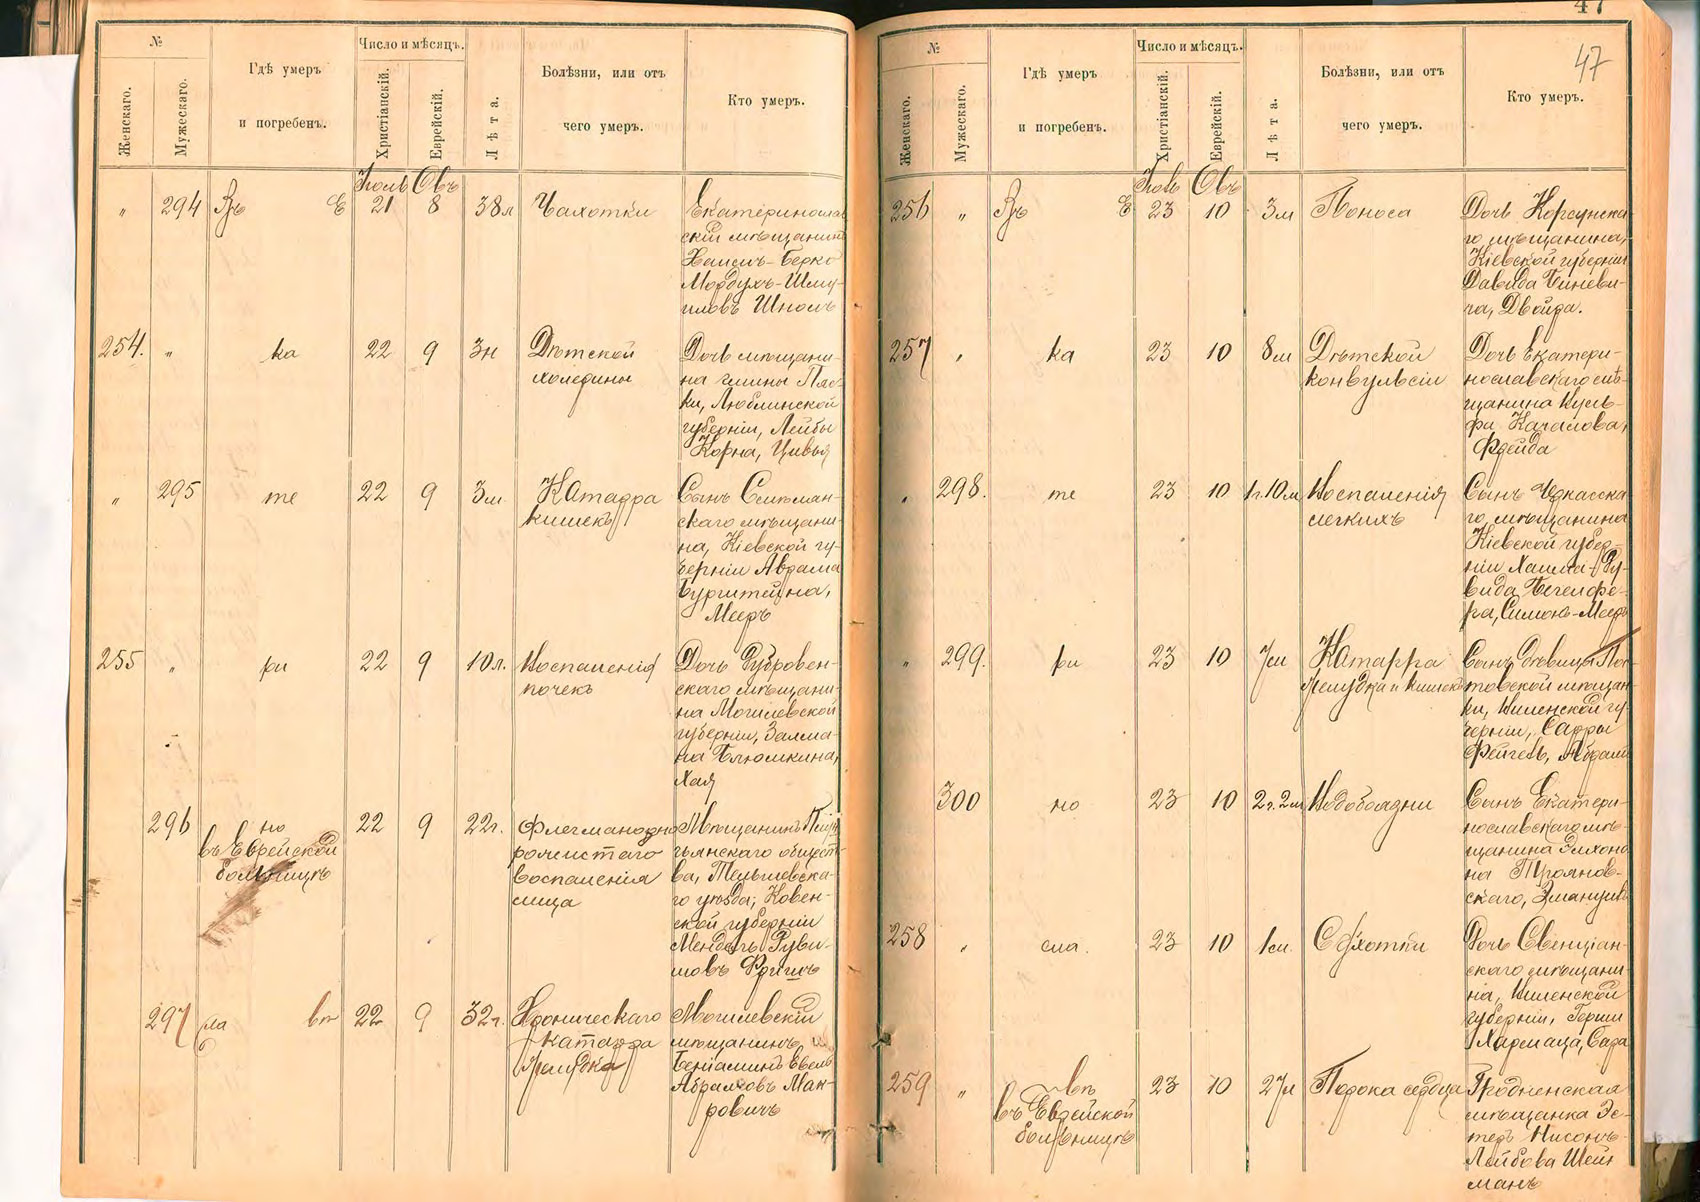 №
Женскаго.
Мужескаго.
Гдѣ умеръ
и погребенъ.
Число и мѣсяцъ.
Христіанскій.
Еврейскій.
Лѣта.
Болѣзни, или отъ
чего умеръ.
Кто умеръ.
Іюль Овъ
" 294 Въ Е 21 8 38 л Чахотки
Екатеринослав
скій мѣщанинъ
Хаимъ-Берко
Мордухъ-Шму-
иловъ
254. " ка 22 9 3 н Дѣтской
холерины
Дочь мѣщани-
на гмины Пяс-
ки, Люблинской
губерніи, Лейбы
Корна, Цивья
" 295 те 22 9 3 м Катарра
кишекъ
Сынъ
скаго мѣщани-
на, Кіевской гу-
берніи Аврама
Бурштейна,
Мееръ
255 " ри 22 9 10 л. Воспаленія
почекъ
Дочь Дубровен-
скаго мѣщани-
на Могилевской
губерніи, Залма-
на Блюмкина,
Хая
296 но
въ Еврейской
больницѣ
22 9 22 г. Флегманозно
рожистаго
воспаленія
лица
Мѣщанинъ
гьянскаго общест-
ва, Тельшевска-
го уѣзда, Ковен-
ской губерніи
Мендель Руви-
мовъ Фригъ
297 сла вѣ 22 9 32 г. Хроническаго
катарра
желудка
Могилевскій
мѣщанинъ
Беніаминъ Евель
АбрамовъМан-
ровичъ
47
47
№
Женскаго.
Мужескаго.
Гдѣ умеръ
и погребенъ.
Число и мѣсяцъ.
Христіанскій.
Еврейскій.
Лѣта.
Болѣзни, или отъ
чего умеръ.
Кто умеръ.
Іюль Овъ
256 " Въ Е 23 10 3 м Поноса
Дочь Корсунска-
го мѣщанина,
Кіевской губерніи
Давида Линеви-
ча, Двойра.
257 " ка 23 10 8 м Дѣтской
конвульсіи
Дочь Екатери-
нославскаго мѣ-
щанина Вуль-
фа Качалова,
Фрейда
" 298. те 23 10 1 г. 10 м Воспаленія
легкихъ
Сынъ Черкасска-
го мѣщанина
Кіевской губер-
ніи Хаима-Ду-
вида
ра, Симонъ-Мееръ
" 299. ри 23 10 7 м Катарра
желудка и кишекъ
Сынъ дѣвицы
товской мѣщан-
ки, Виленской гу-
берніи, Сарры
Фейгель, Абрамъ
300 но 23 10 2 г. 2 м Водобоязни
Сынъ Екатери-
нославскаго мѣ-
щанина Элхоно
на Трояновъ-
скаго, Эмануилъ
258 " сла. 23 10 1 м. Сухотки
Дочь Свенціан-
скаго мѣщани-
на, Виленской
губерніи, Герши
Хармаца, Сара
259 " вѣ
въ Еврейской
больницѣ
23 10 27 л Порока сердца
Гродненская
мѣщанка Эс-
теръ Нисонъ-
Лейбова Шей
манъ